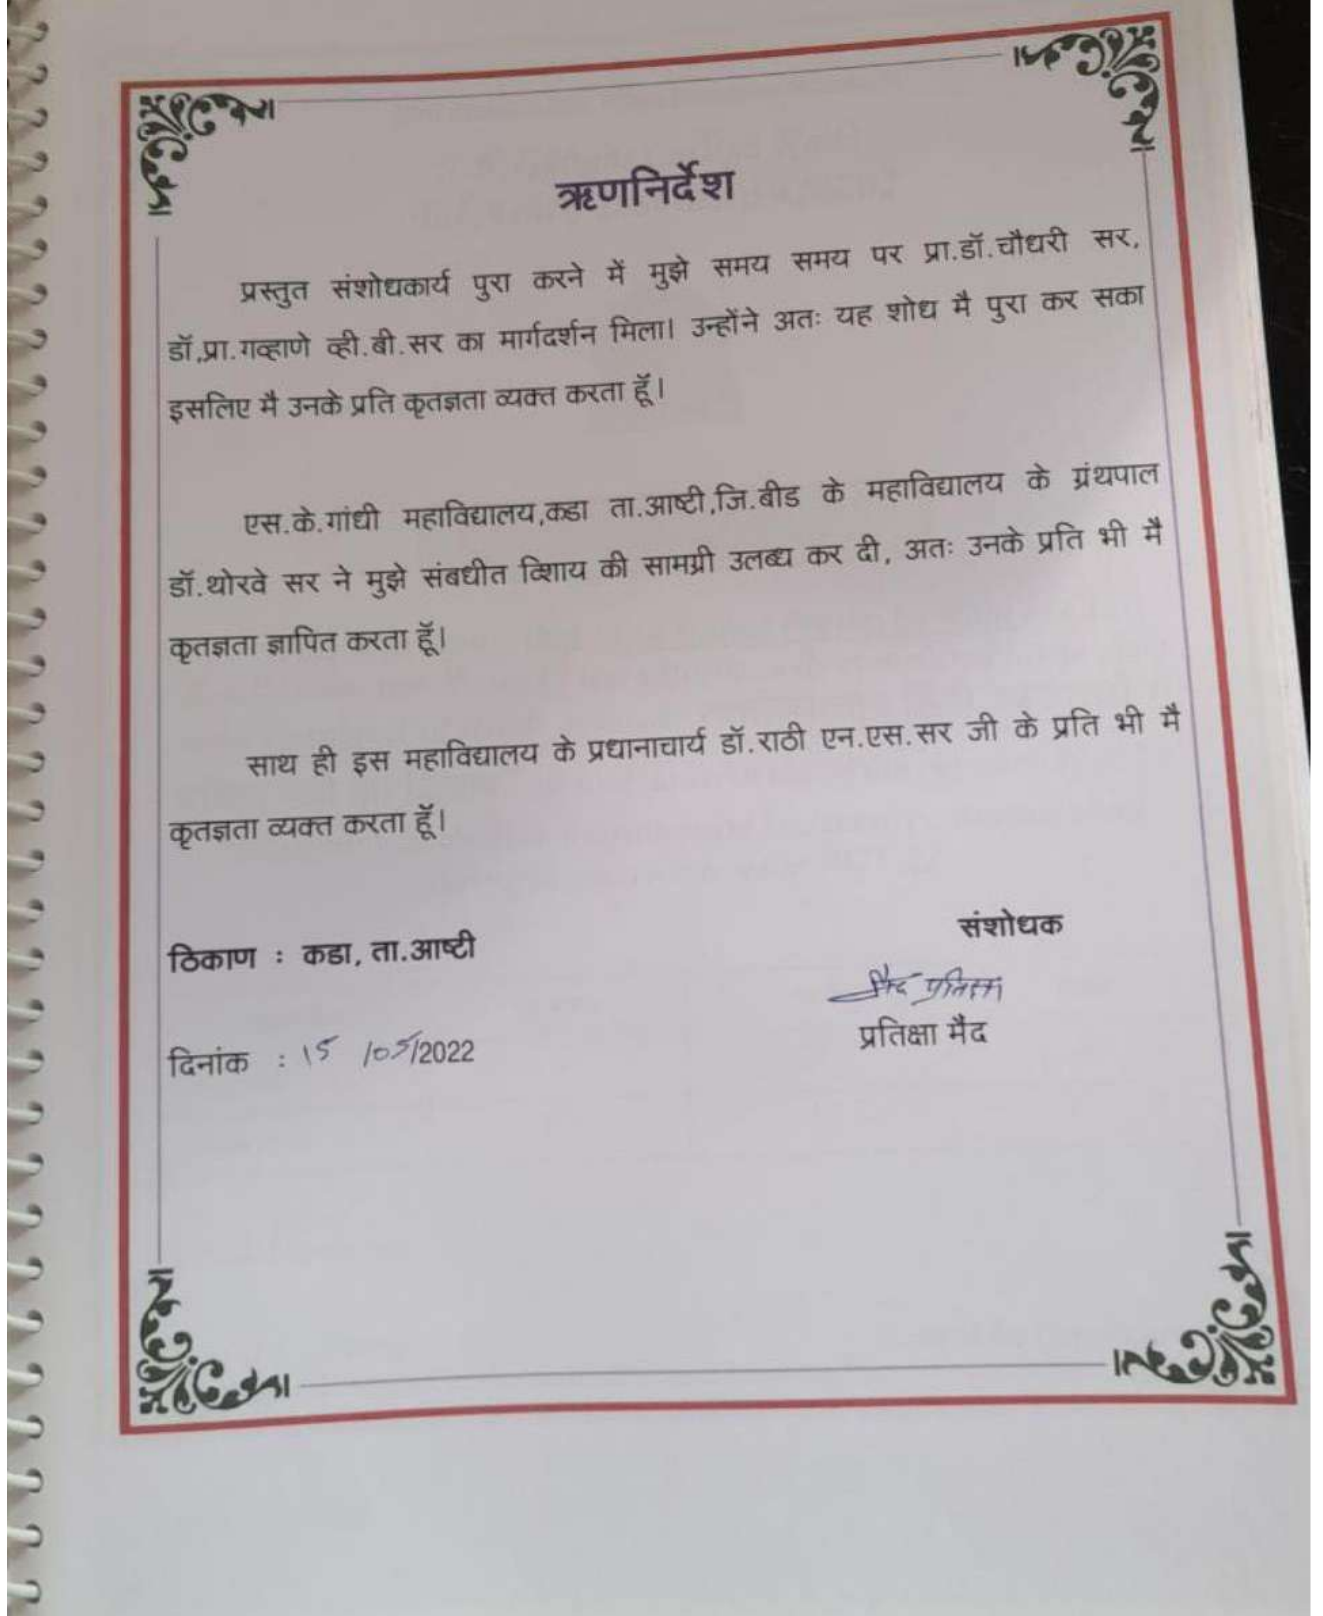 ऋणनिर्देश
प्रस्तुत संशोधकार्य पुरा करने में मुझे समय समय पर प्रा.डॉ.चौधरी सर,
डॉ.प्रा.गव्हाणे व्ही.बी.सर का मार्गदर्शन मिला। उन्होंने अतः यह शोध मै पुरा कर सका
इसलिए मै उनके प्रति कृतज्ञता व्यक्त करता हूॅ।
एस.के.गांधी महाविद्यालय,कडा ता.आष्टी,जि.बीड के महाविद्यालय के ग्रंथपाल
डॉ.थोरवे सर ने मुझे संबधीत विशाय की सामग्री उलब्ध कर दी, अतः उनके प्रति भी मै
कृतज्ञता ज्ञापित करता हूॅ।
साथ ही इस महाविद्यालय के प्रधानाचार्य डॉ.राठी एन.एस.सर जी के प्रति भी मै
कृतज्ञता व्यक्त करता हूॅ।
संशोधक
ठिकाण : कडा, ता.आष्टी
मैद प्रतिक्षा
प्रतिक्षा मैद
दिनांक : 15 /05/2022